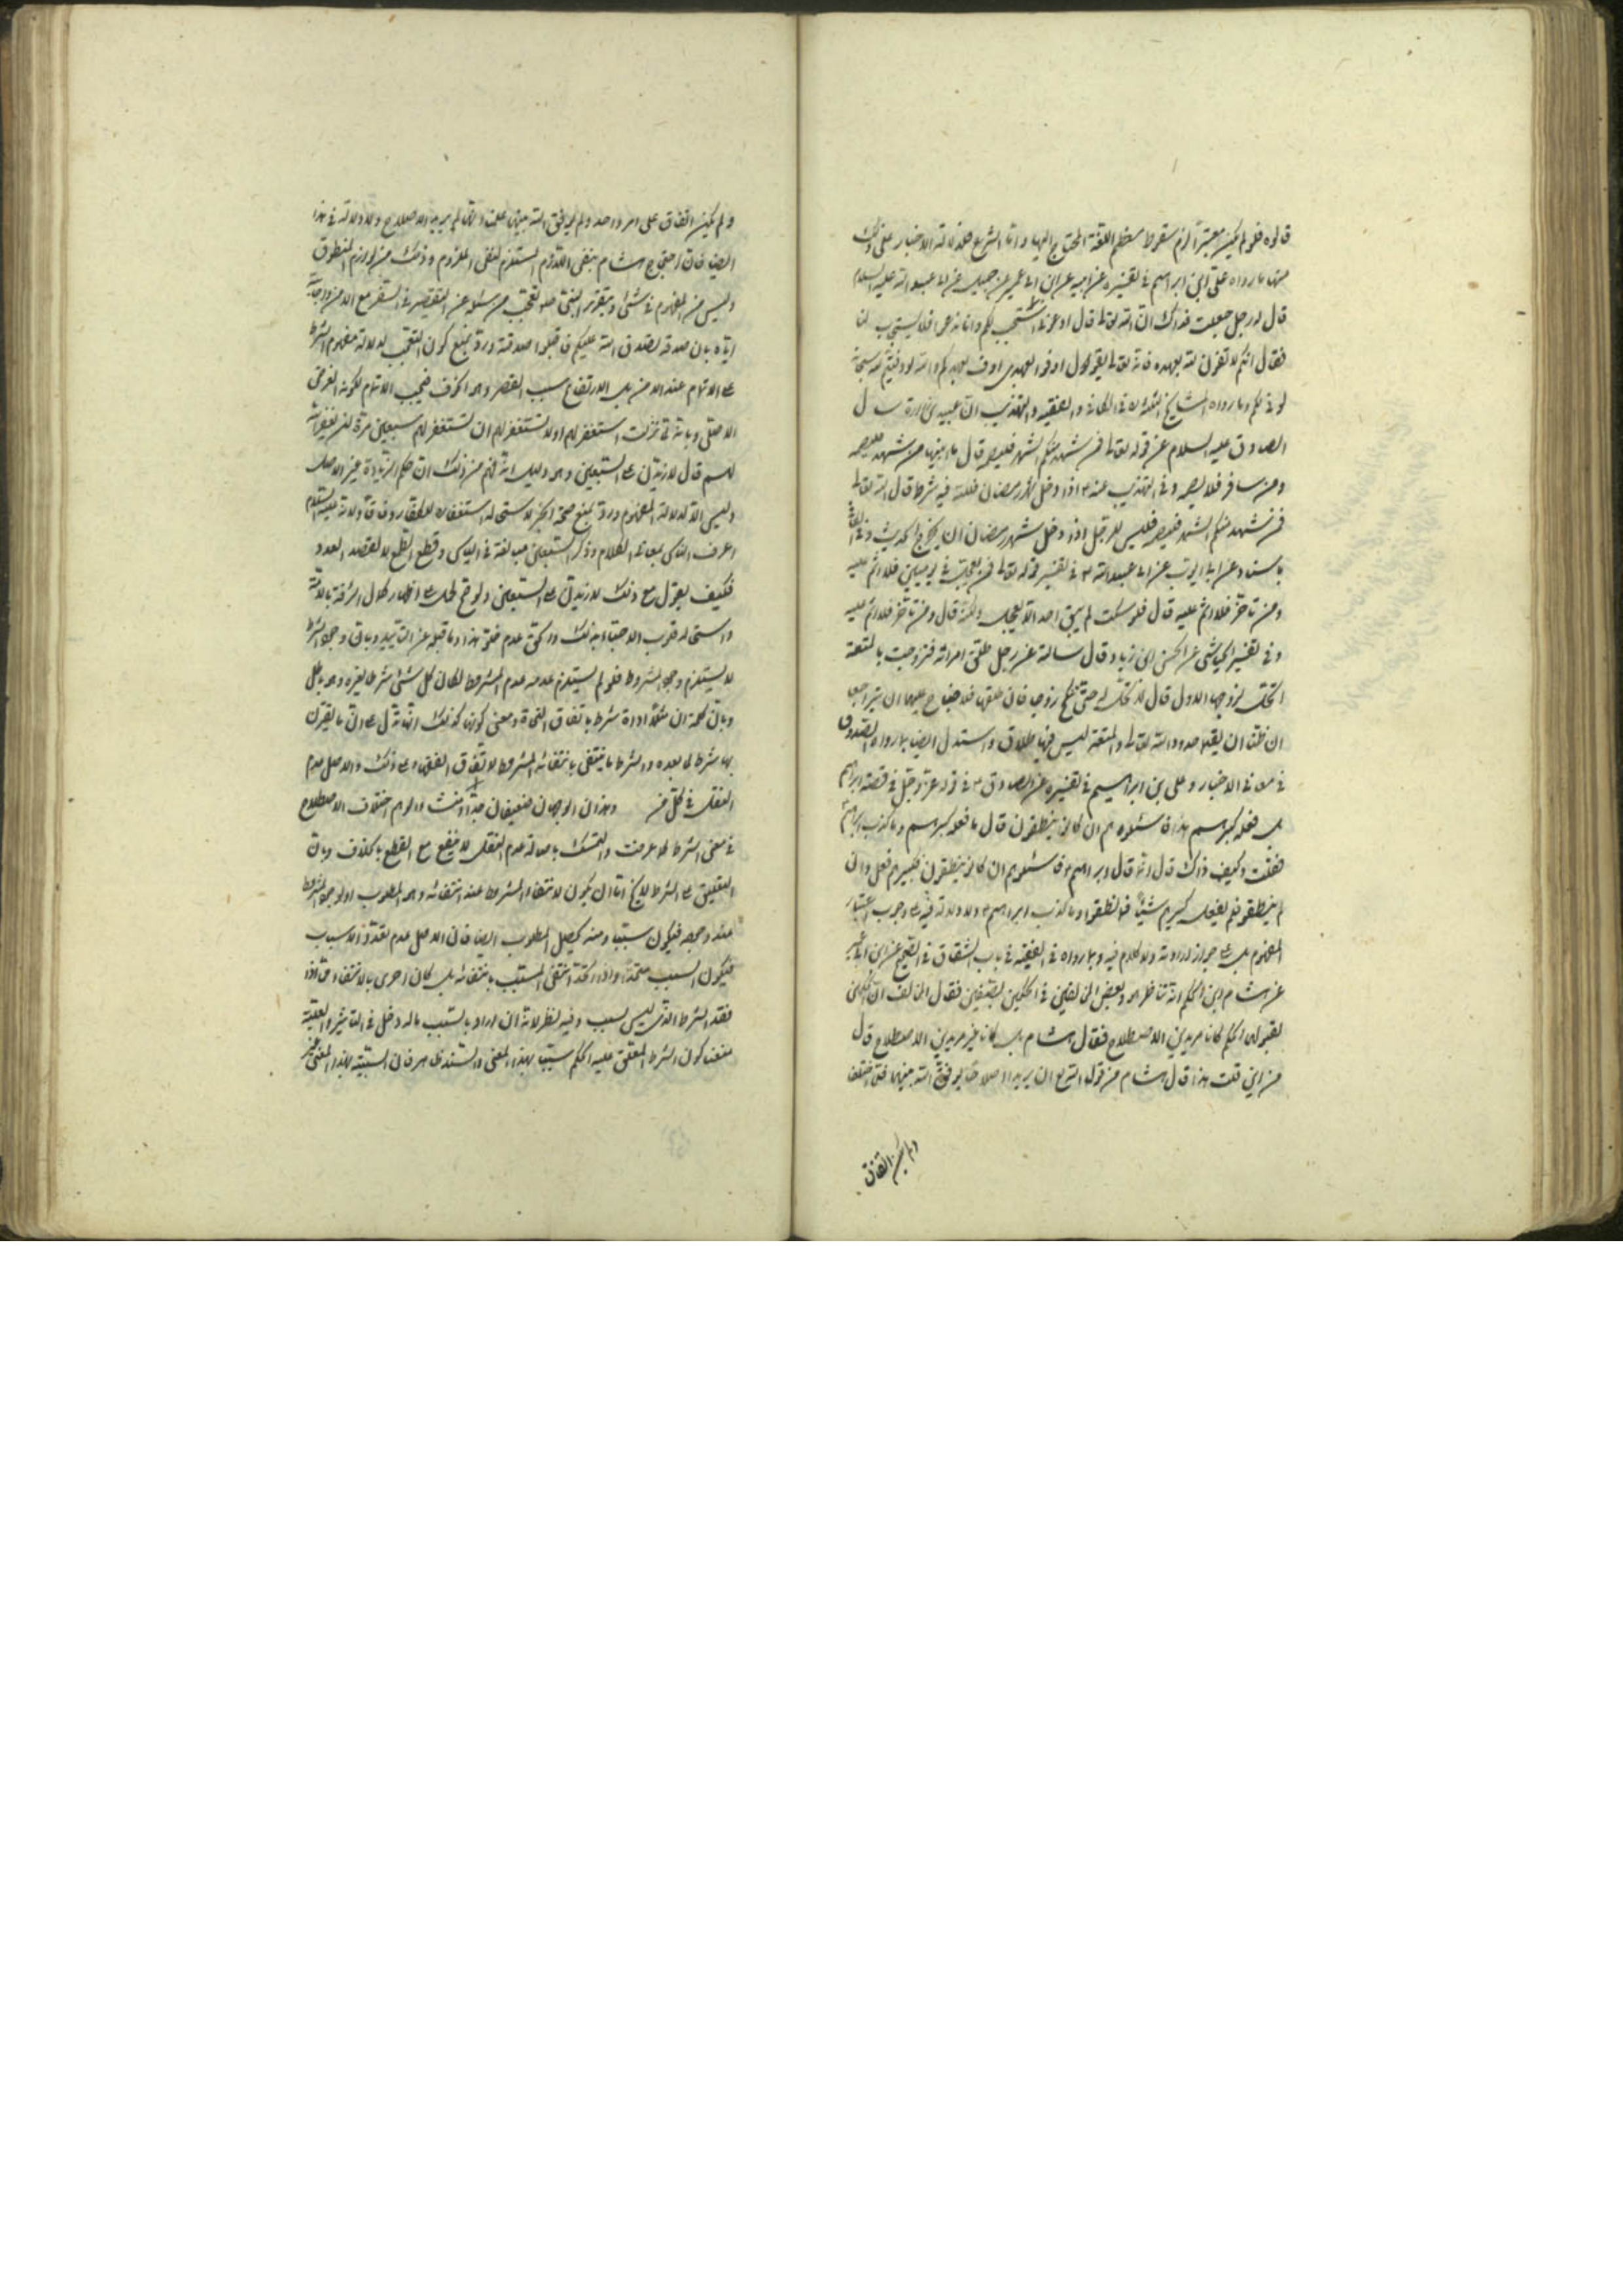 قالوه فلو لم يكن معتبرا لزم سقوط معظم اللغة المحتاج اليها واما الشرع فلدلالة الاخبار على ذلك
منها ما رواه علي ابن ابراهيم في تفسيره عن ابيه عن ابن ابي عمير عن جميل عن ابي عبد الله عليه السلام
قال له رجل جعلت فداك ان الله تعالى قال ادعوني استجب لكم وانا ندعو فلا يستجاب لنا
فقال انكم لا تفون لله بعهده فانه تعالى يقول اوفوا بعهدي اوف بعهدكم والله لو وفيتم لله سبحانه
لوفى لكم وما رواه المشايخ الثلثة في الكافي والفقيه والتهذيب ان عبيد بن زرارة سال
الصادق عليه السلام عن قوله تعالى فمن شهد منكم الشهر فليصمه قال ما ابينها من شهد فليصمه
ومن سافر فلا يصمه وفي التهذيب عنه ع اذا دخل شهر رمضان فلله فيه شرط قال الله تعالى
فمن شهد منكم الشهر فليصمه فليس للرجل اذا دخل شهر رمضان ان يخرج الحديث وفي
باسناده عن ابي ايوب عن ابي عبد الله ع في تفسير قوله تعالى فمن تعجل في يومين فلا اثم عليه
ومن تاخر فلا اثم عليه قال فلو سكت لم يبق احد الا تعجل ولكنه قال ومن تاخر فلا اثم عليه
وفي تفسير العياشي عن الحسن بن زياد قال سالته عن رجل طلق امراته فتزوجت بالمتعة
اتحل لزوجها الاول قال لا تحل له حتى تنكح زوجا فان طلقها فلا جناح عليهما ان يتراجعا
ان ظنا ان يقيما حدود الله تعالى والمتعة ليس فيها طلاق واستدل ايضا بما رواه الصدوق
في معاني الاخبار وعلي بن ابراهيم في تفسيره عن الصادق ع في قوله عز وجل في قصة ابراهيم
بل فعله كبيرهم هذا فاسئلوهم ان كانوا ينطقون قال ما فعله كبيرهم وما كذب ابراهيم
فقلت وكيف ذاك قال انه قال ابراهيم فاسئلوهم ان كانوا ينطقون فكبيرهم فعل وان
لم ينطقوا فلم يفعل كبيرهم شيئا فما نطقوا وما كذب ابراهيم ع ولا دلالة فيه على وجوب اعتبار
المفهوم بل على جواز ارادته ولا كلام فيه وبما رواه في الفقيه في باب الشقاق في الصحيح عن ابن ابي عمير
عن هشام بن الحكم انه تناظر هو وبعض المخالفين في الحكمين بصفين فقال المخالف ان الحكمين
لقبولهما الحكم كانا مريدين الاصلاح فقال هشام بل كانا غير مريدين الاصلاح قال
من اين قلت هذا قال هشام من قول الله تع ان يريدا اصلاحا يوفق الله بينهما فلما اختلفا
ولم يكن اتفاق
ولم يكن اتفاق على امر واحد ولم يوفق الله بينهما علمنا انهما لم يريدا الاصلاح ولا دلالة في هذا
ايضا فان احتجاج هشام بنفي اللازم المستلزم لنفي الملزوم وذلك من لوازم المنطوق
وليس من المفهوم في شيء وبتقرير النبي صلعم تعجب من سئله عن التقصير في السفر مع الامن واجابته
اياه بان صدقة تصدق الله عليكم فاقبلوا صدقته ورد بمنع كون التعجب لدلالة مفهوم الشرط
على الاتمام عند الامن بل لارتفاع سبب القصر وهو الخوف فيجب الاتمام لكونه الفرض
الاصلي وبانه لما نزلت استغفر لهم او لا تستغفر لهم ان تستغفر لهم سبعين مرة فلن يغفر الله
لهم قال لازيدن على السبعين وهو دليل انه فهم من ذلك ان حكم الزيادة غير الاصل
وليس الا لدلالة المفهوم ورد بمنع صحة الخبر لاستحالة استغفاره للكفار وفاقا ولانه عليه السلام
اعرف الناس بمعاني الكلام وذكر السبعين مبالغة في الياس وقطع الطمع لا لقصد العدد
فكيف يقول مع ذلك لازيدن على السبعين ولو صح لحمل على اظهار كمال الرافة بالامة
واستحالة قرب الاحباء بذلك والحق عدم خلو هذا وما قبله عن التاييد وبان وجود الشرط
لا يستلزم وجود المشروط فلو لم يستلزم عدمه عدم المشروط لكان كل شيء شرطا لغيره وهو باطل
وبان كلمة ان مثلا اداة شرط باتفاق النحاة ومعنى كونها كذلك انها تدل على ان ما يقترن
بها شرط لما بعده والشرط ما ينتفي بانتفائه المشروط لاتفاق الفقهاء على ذلك والاصل عدم
النقل في كل من وهذان الوجهان ضعيفان جدا ومنشا الوهم اختلاف الاصطلاح
في معنى الشرط كما عرفت والتمسك باصالة عدم النقل لا ينفع مع القطع بالخلاف وبان
التعليق على الشرط لا يخ اما ان يكون لانتفاء المشروط عند انتفائه وهو المطلوب او لوجود المشروط
عند وجوده فيكون سببا ومنه يحصل المطلوب ايضا فان الاصل عدم تعدد الاسباب
فيكون السبب متحدا واذا اتحد انتفى المسبب بانتفائه بل كان احرى بالانتفاء مما اذا
فقد الشرط الذي ليس بسبب وفيه نظر لانه ان اراد بالسبب ما له دخل في التاثير والعلية
منعنا كون الشرط المعلق عليه الحكم سببا بهذا المعنى والسند ظاهر فان السببية بهذا المعنى غير